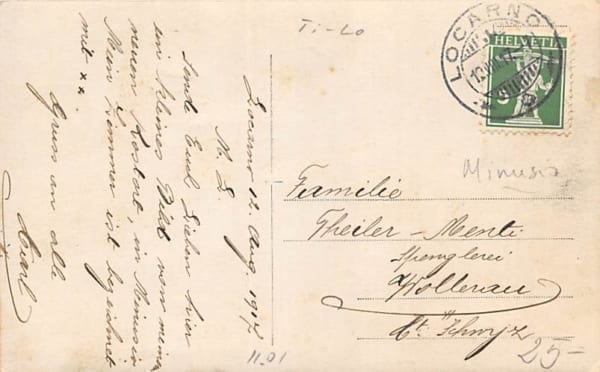 Ti-Lo
LOCARNO
HELVETIA
Locarno 12. Aug. 1917
N. L.
Sende Euch Lieben hier
ein kleines Bild von meinem
neuen Kostort, in Minusio
Mein Zimmer ist bezeichnet
mit xx.
Gruss an alle
Carl
Minusio
Familie
Theiler-Menti
Spenglerei
Wollerau
Kt. Schwyz
11.01
25-